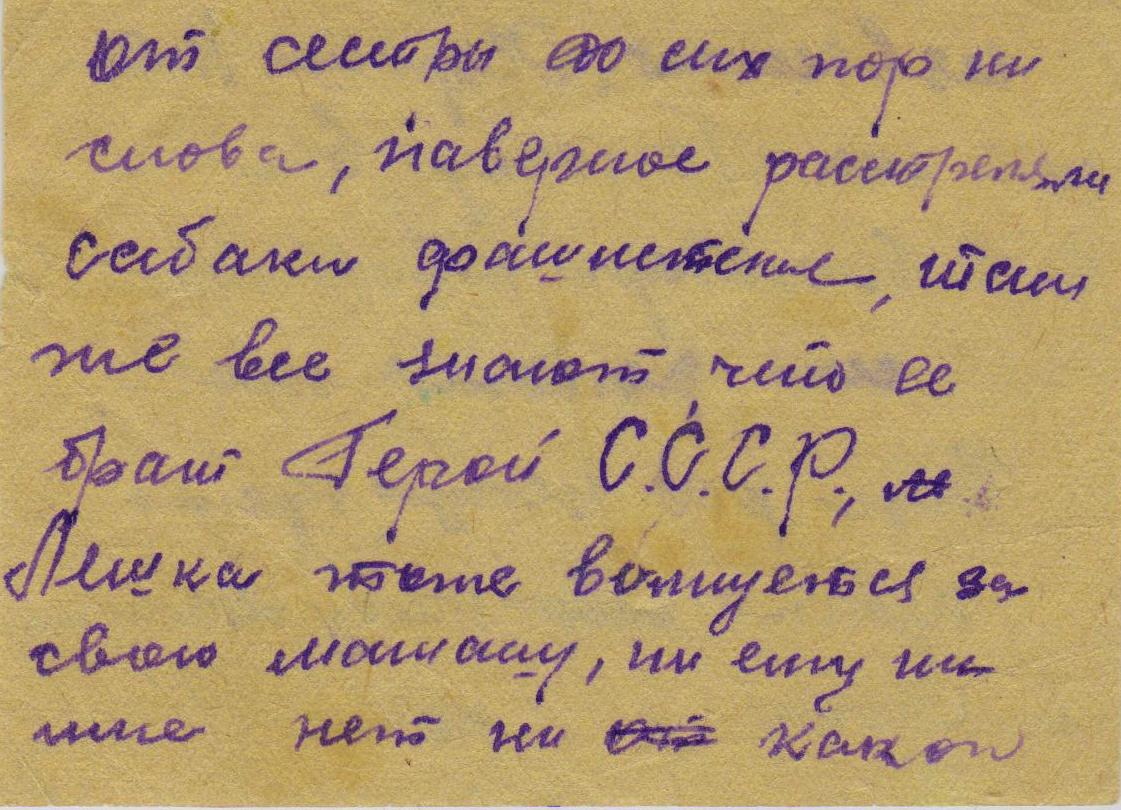 От сестры до сих пор ни
слова, наверное расстреляли
сабаки фашистские, там
же все знают что ее
брат Герой С.С.С.Р.,
Лешка тоже волнуется за
свою мамашу, ни ему ни
мне нет ни какой